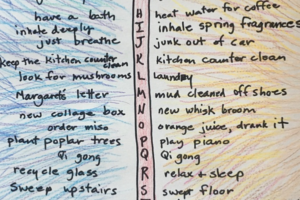 have a bath H heat water for coffee
inhale deeply I inhale spring fragrances
just breathe J junk out of car
keep the kitchen counter clean K kitchen counter clean
look for mushrooms L laundry
Margaret's letter M mud cleaned off shoes
new collage box N new whisk broom
order miso O orange juice, drank it
plant poplar trees P play piano
Qi gong Q Qi gong
recycle glass R relax + sleep
Sweep upstairs S swept floor